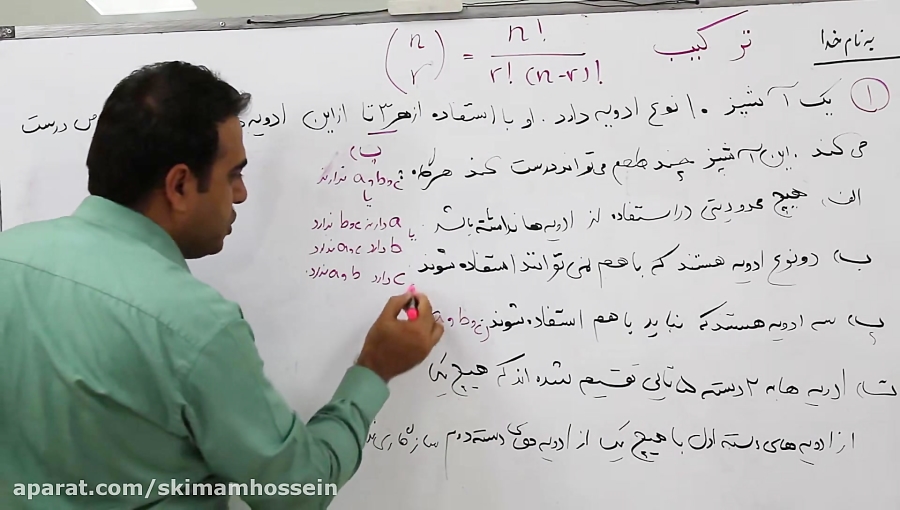 به نام خدا
ترکیب
(n r) = n! / r! (n-r)!
۱ یک آشپز ۱۰ نوع ادویه دارد. او با استفاده از هر ۳ تا از این ادویه درست
می کند. این آشپز چند طعم می تواند درست کند هرگاه:
الف) هیچ محدودیتی در استفاده از ادویه ها نداشته باشد.
ب) دو نوع ادویه هستند که با هم نمی توانند استفاده شوند
پ) سه ادویه هستند که نباید با هم استفاده شوند a و b و c
ت) ادویه ها به ۲ دسته ۵ تایی تقسیم شده اند که هیچ یک
از ادویه های دسته اول با هیچ یک از ادویه های دسته دوم سازگاری
پ)
a و b و c ندارند
یا
a دارند b و c ندارد یا
b دارد a و c ندارد
c دارد a و b ندارد.
aparat.com/skimamhossein